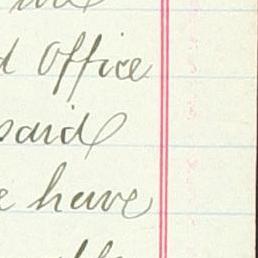 d Office
said
e have